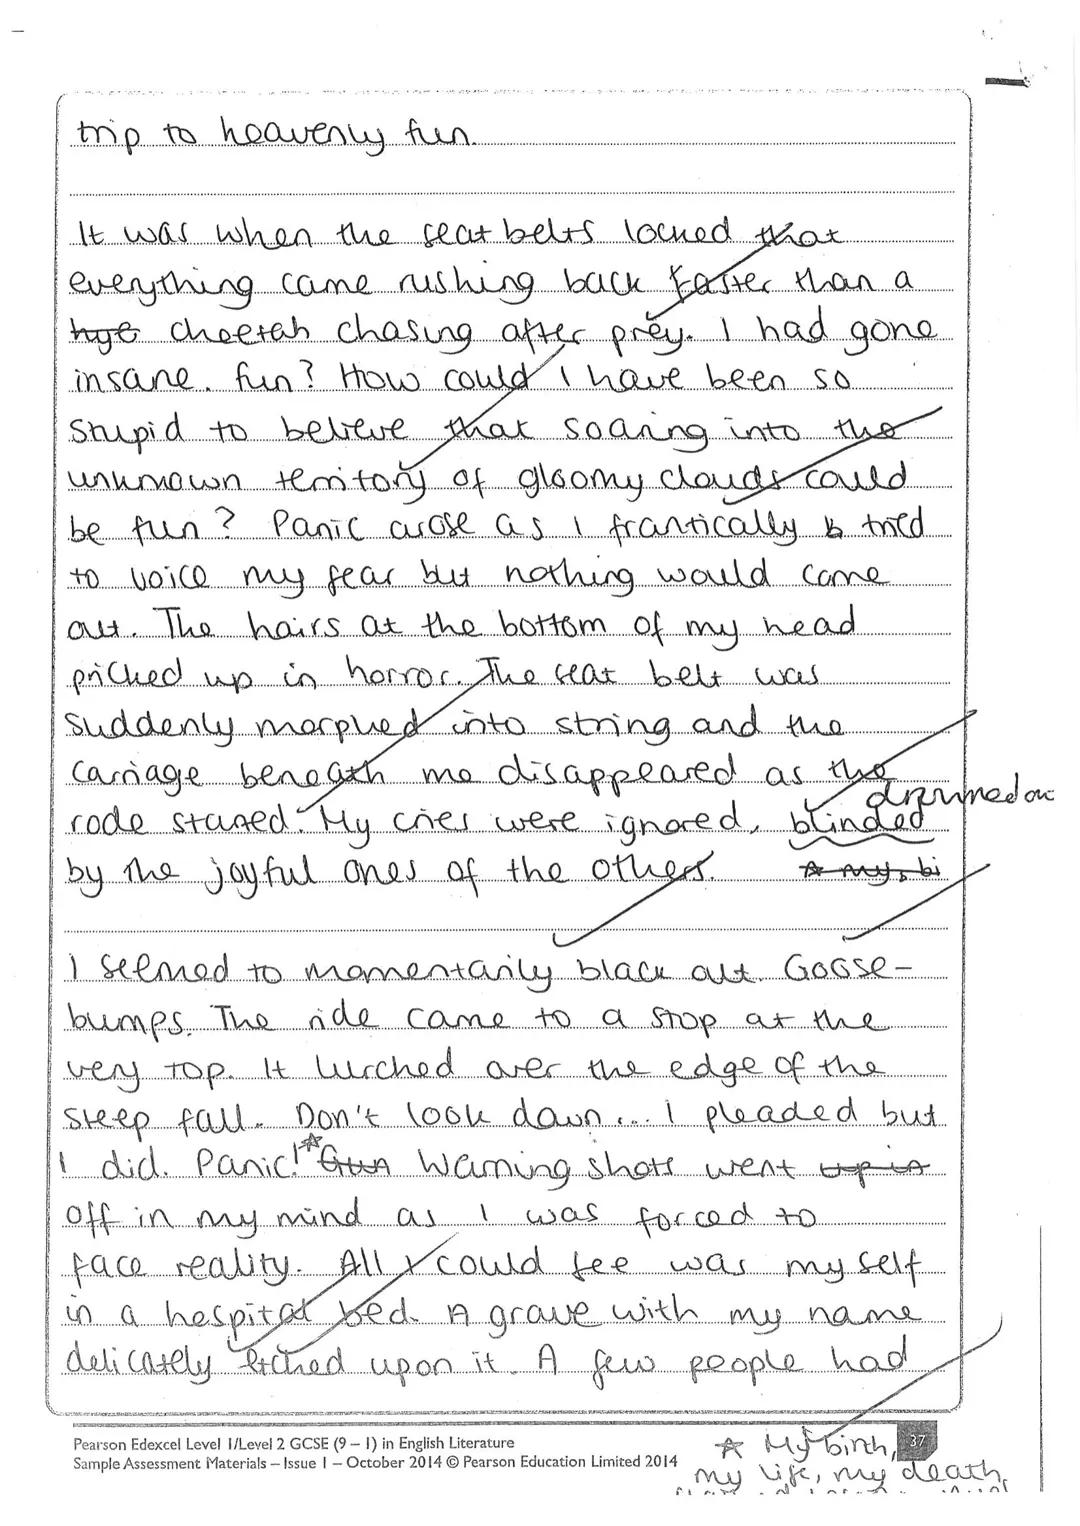 trip to heavenly fun.
It was when the seat belts locked that
everything came rushing back faster than a
huge cheetah chasing after prey. I had gone
insane. fun? How could I have been so
stupid to believe that soaring into the
unknown territory of gloomy clouds could
be fun? Panic arose as I frantically b tried
to voice my fear but nothing would come
out. The hairs at the bottom of my head
pricked up in horror. The seat belt was
suddenly morphed into string and the
carriage beneath me disappeared as the
drowned out
rode started. My cries were ignored, blinded
by the joyful ones of the others.
☆ my, bi
I seemed to momentarily black out. Goose-
bumps. The ride came to a stop at the
very top. It lurched over the edge of the
steep fall. Don't look down... I pleaded but
I did. Panic!☆ Gun Warning shots went up in
off in my mind as I was forced to
face reality. All I could see was my self
in a hospital bed. A grave with my name
delicately etched upon it. A few people had
Pearson Edexcel Level 1/Level 2 GCSE (9 – 1) in English Literature
Sample Assessment Materials – Issue 1 – October 2014 © Pearson Education Limited 2014
37
☆ My birth,
my life, my death,